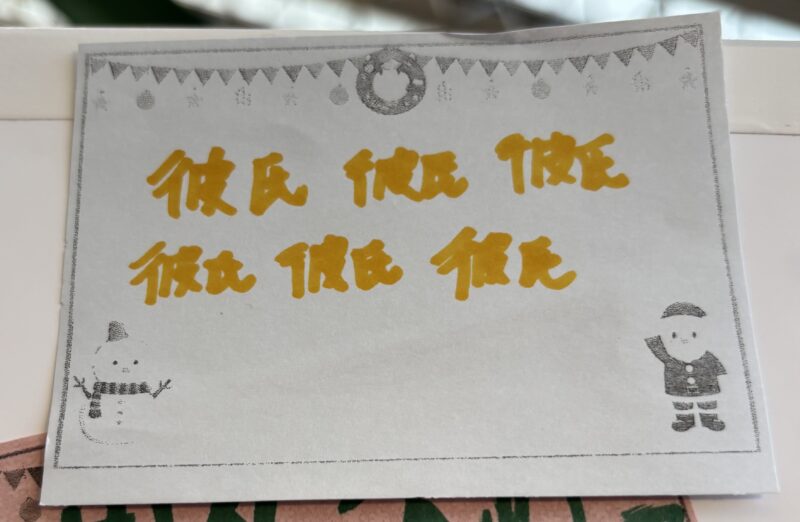 彼氏 彼氏 彼氏
彼氏 彼氏 彼氏